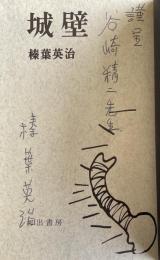 城壁
榛葉英治
謹呈
谷崎精二先生
榛葉英治
出書房